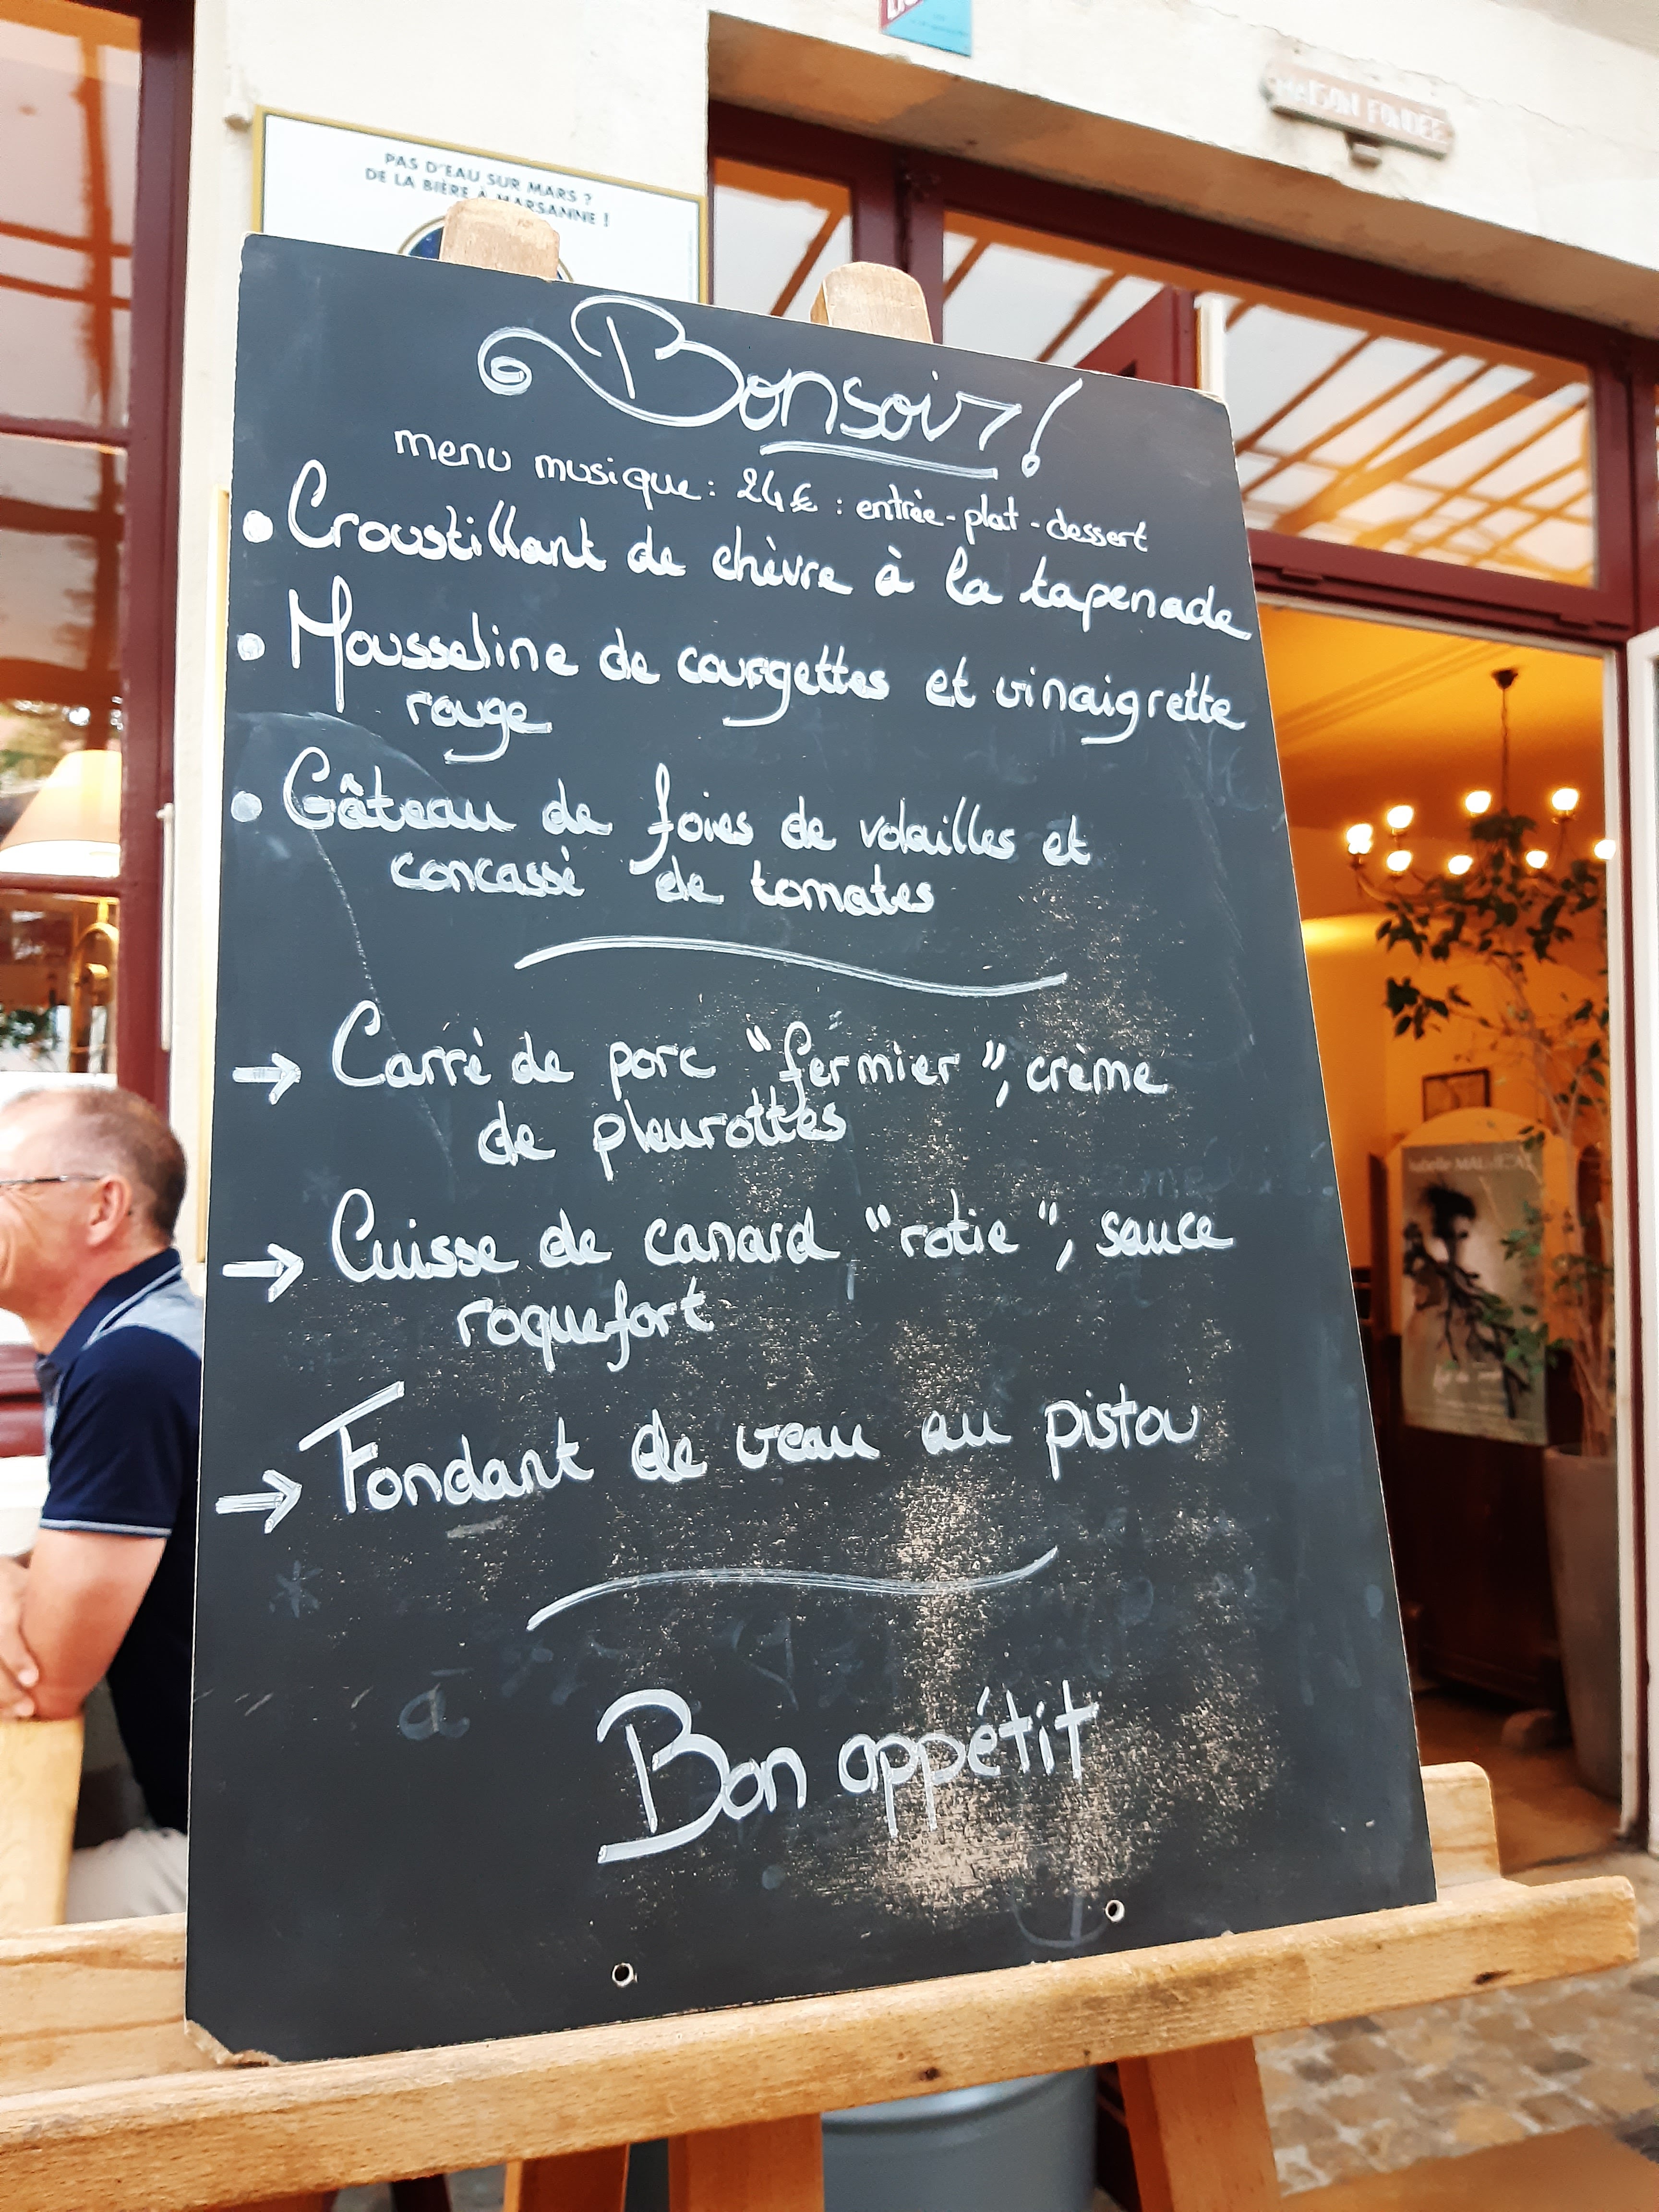 PAS D'EAU SUR MARS ?
DE LA BIÈRE À MARSANNE !
MAISON FONDÉE
Bonsoir !
menu musique : 24€ : entrée - plat - dessert
• Croustillant de chèvre à la tapenade
• Mousseline de courgettes et vinaigrette
rouge
• Gâteau de foies de volailles et
concassé de tomates
→ Carré de porc "fermier", crème
de pleurottes
→ Cuisse de canard "rotie", sauce
roquefort
→ Fondant de veau au pistou
Bon appétit